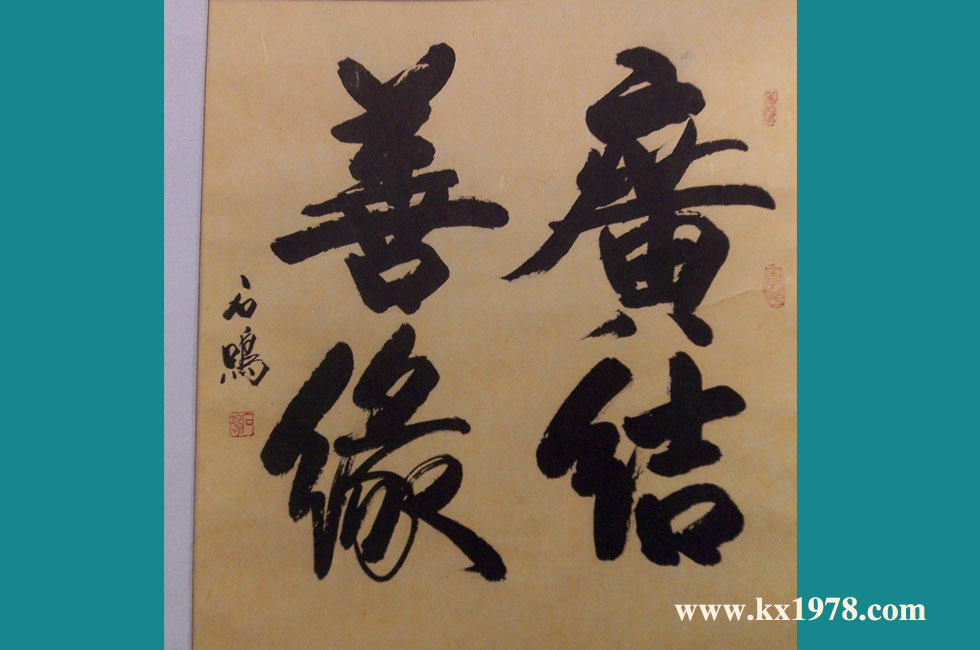 廣結
善緣
石鳴
www.kx1978.com